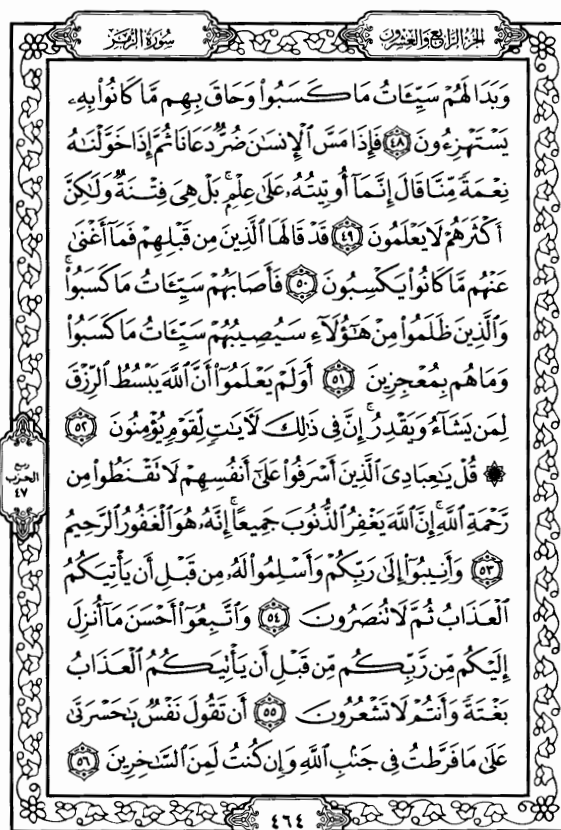 سُورَةُ الزُّمَرِ
الجُزءُ الرَّابِعُ وَالعِشْرُونَ
وَبَدَا لَهُمْ سَيِّـَٔاتُ مَا كَسَبُوا۟ وَحَاقَ بِهِم مَّا كَانُوا۟ بِهِۦ
يَسْتَهْزِءُونَ ٤٨ فَإِذَا مَسَّ ٱلْإِنسَٰنَ ضُرٌّ دَعَانَا ثُمَّ إِذَا خَوَّلْنَٰهُ
نِعْمَةً مِّنَّا قَالَ إِنَّمَآ أُوتِيتُهُۥ عَلَىٰ عِلْمٍۭ ۚ بَلْ هِىَ فِتْنَةٌ وَلَٰكِنَّ
أَكْثَرَهُمْ لَا يَعْلَمُونَ ٤٩ قَدْ قَالَهَا ٱلَّذِينَ مِن قَبْلِهِمْ فَمَآ أَغْنَىٰ
عَنْهُم مَّا كَانُوا۟ يَكْسِبُونَ ٥٠ فَأَصَابَهُمْ سَيِّـَٔاتُ مَا كَسَبُوا۟ ۚ
وَٱلَّذِينَ ظَلَمُوا۟ مِنْ هَٰٓؤُلَآءِ سَيُصِيبُهُمْ سَيِّـَٔاتُ مَا كَسَبُوا۟
وَمَا هُم بِمُعْجِزِينَ ٥١ أَوَلَمْ يَعْلَمُوٓا۟ أَنَّ ٱللَّهَ يَبْسُطُ ٱلرِّزْقَ
لِمَن يَشَآءُ وَيَقْدِرُ ۚ إِنَّ فِى ذَٰلِكَ لَءَايَٰتٍ لِّقَوْمٍ يُؤْمِنُونَ ٥٢
۞ قُلْ يَٰعِبَادِىَ ٱلَّذِينَ أَسْرَفُوا۟ عَلَىٰٓ أَنفُسِهِمْ لَا تَقْنَطُوا۟ مِن
رَّحْمَةِ ٱللَّهِ ۚ إِنَّ ٱللَّهَ يَغْفِرُ ٱلذُّنُوبَ جَمِيعًا ۚ إِنَّهُۥ هُوَ ٱلْغَفُورُ ٱلرَّحِيمُ
٥٣ وَأَنِيبُوٓا۟ إِلَىٰ رَبِّكُمْ وَأَسْلِمُوا۟ لَهُۥ مِن قَبْلِ أَن يَأْتِيَكُمُ
ٱلْعَذَابُ ثُمَّ لَا تُنصَرُونَ ٥٤ وَٱتَّبِعُوٓا۟ أَحْسَنَ مَآ أُنزِلَ
إِلَيْكُم مِّن رَّبِّكُم مِّن قَبْلِ أَن يَأْتِيَكُمُ ٱلْعَذَابُ
بَغْتَةً وَأَنتُمْ لَا تَشْعُرُونَ ٥٥ أَن تَقُولَ نَفْسٌ يَٰحَسْرَتَىٰ
عَلَىٰ مَا فَرَّطتُ فِى جَنۢبِ ٱللَّهِ وَإِن كُنتُ لَمِنَ ٱلسَّٰخِرِينَ ٥٦
ربع
الحزب
٤٧
٤٦٤